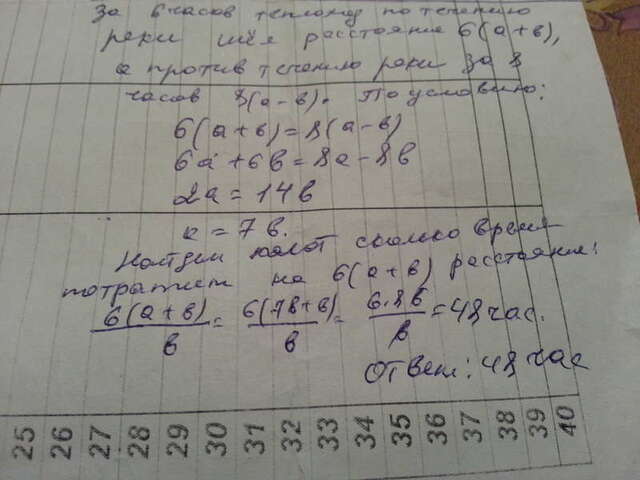 За 6 часов теплоход по течению
реки шёл расстояние 6(а+в),
а против течению реки за 8
часов 8(а-в). По условию:
6(а+в)=8(а-в)
6а+6в=8а-8в
2а=14в
а=7в.
Найдем сколько время
потратит на 6(а+в) расстояние:
6(а+в)/в = 6(7в+в)/в = 6·8в/в = 48 час.
Ответ: 48 час
25 26 27 28 29 30 31 32 33 34 35 36 37 38 39 40